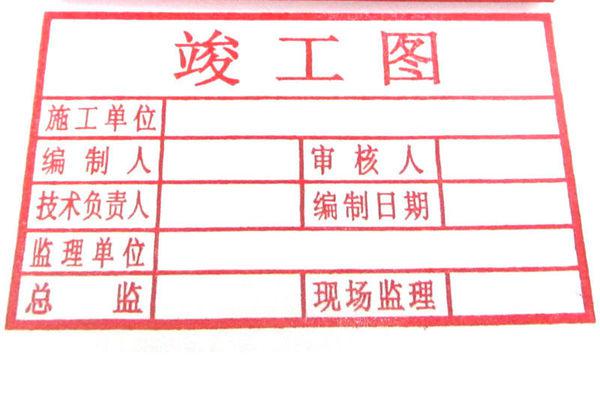 竣工图
施工单位
编制人 审核人
技术负责人 编制日期
监理单位
总监 现场监理